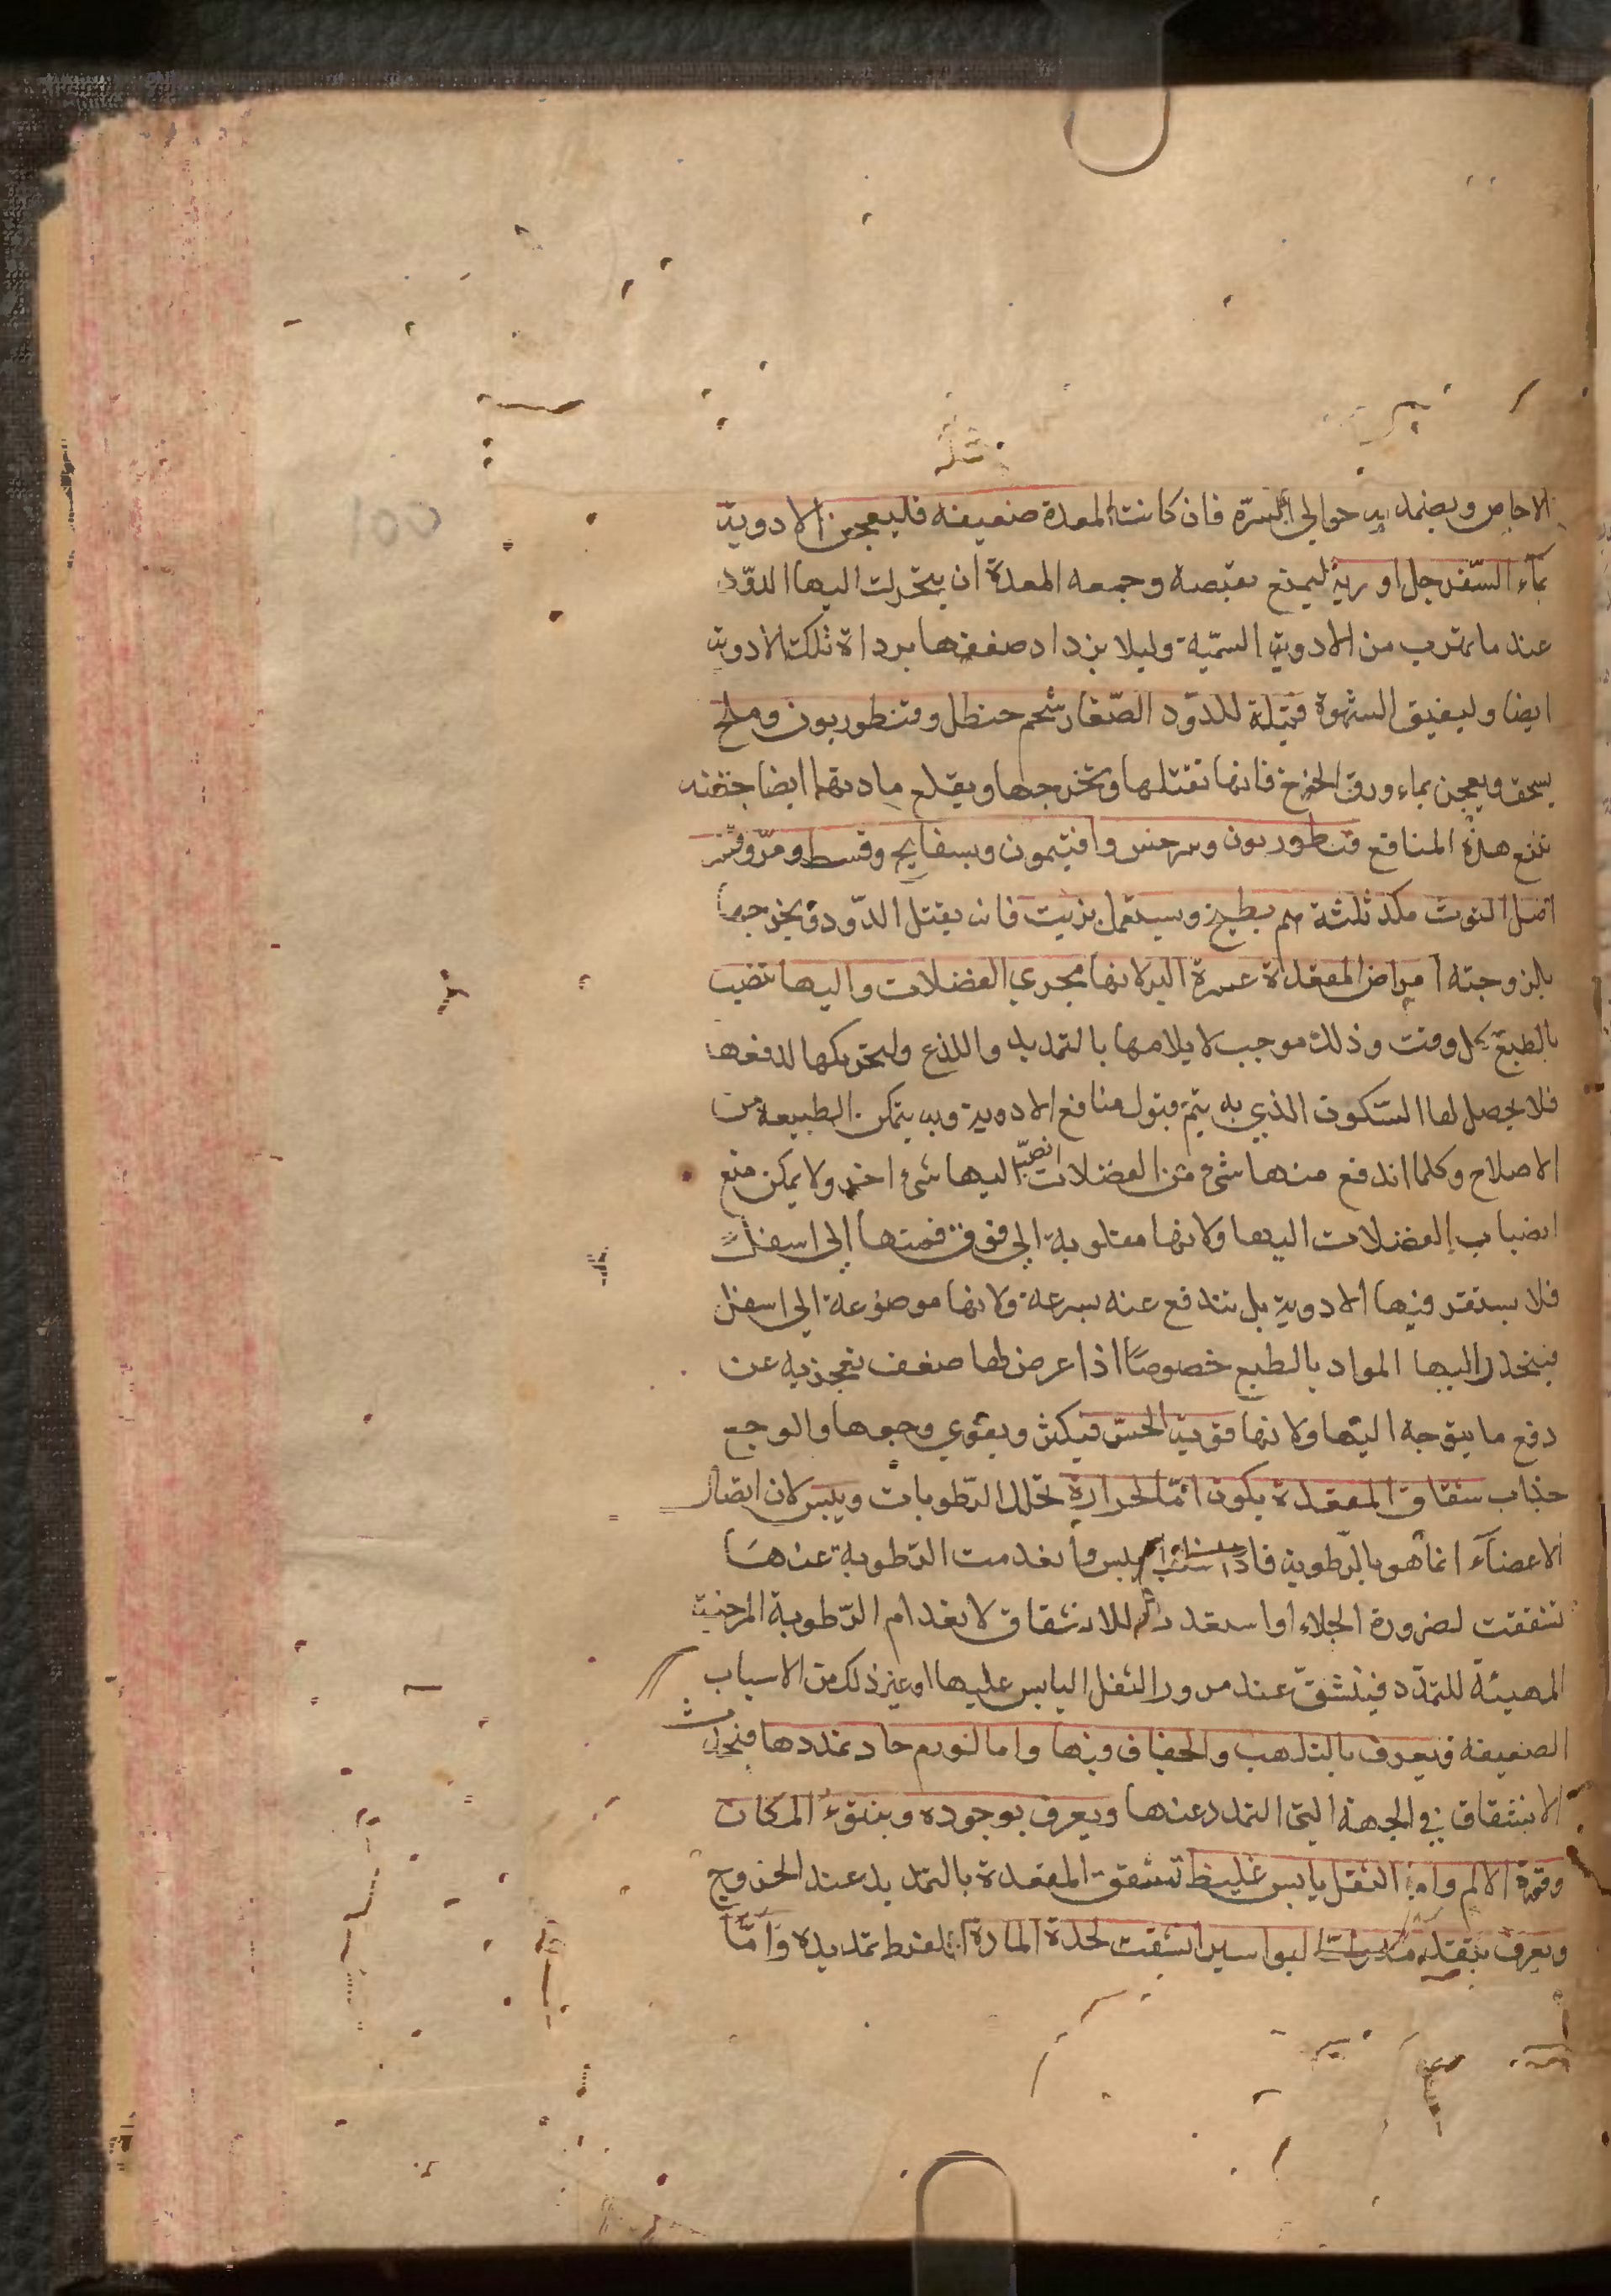 100
الاجاص ويضمد به حوالى السرّة فان كانت المعدة ضعيفة فليعجن الادوية
بماء السّفرجل او ربه ليمنع بقبضه وجمعه المعدة ان يتحرك اليها الدّود
عند ما يهرب من الادوية السمّية وليلا يزداد ضعفها برداة تلك الادوية
ايضا وليفيق الشهوة فتيلة للدّود الصّغار شحم حنظل وقنطوريون وملح
يسحق ويعجن بماء ورق الخوخ فانها تقتلها وتخرجها ويقلع مادتها ايضا حقنه
تنفع هذه المنافع قنطوريون وسرخس وافتيمون وبسفايج وقسط ومرّ وقشر
اصل التوت مكد ثلثة يطبخ ويستعمل بزيت فانه يقتل الدّود ويخرجها
بلزوجته امراض المقعدة عسرة البرء لانها مجرى الفضلات واليها تنصب
بالطبع كل وقت وذلك موجب لايلامها بالتمديد واللذع ولتحريكها لدفعها
فلا يحصل لها السّكون الذي به يتمّ قبول منافع الادوية وبه يتمكن الطبيعة من
الاصلاح وكلما اندفع منها شئ من الفضلات انصبّ اليها شئ اخر ولا يمكن منع
انصباب الفضلات اليها ولانها مقلوبة الى فوق فمتها الى اسفل
فلا يستقر فيها الادوية بل تندفع عنه بسرعة ولانها موضوعة الى اسفل
فينحدر اليها المواد بالطبع خصوصًا اذا عرض لها ضعف تعجز به عن
دفع ما يتوجه اليها ولانها قوية الحسّ فيكثر ويقوي وجعها والوجع
جذاب شقاق المقعدة يكون امّا لحرارة تحلل الرّطوبات ويبس لان اتصال
الاعضآء انما هو بالرّطوبة فاذا يبس وانعدمت الرّطوبة عنها
تنفقت لضرورة الجلاء او استعدت للانشقاق لانعدام الرّطوبة المرخية
المهيئة للتمدّد فينشقّ عند مرور الثفل اليابس عليها او غير ذلك من الاسباب
الضعيفة ويعرف بالتلهب والجفاف فيها واما لتورم حاد تمددها فيحدث
الانشقاق في الجهة التى التمدد عنها ويعرف بوجوده وبنتوء المكان
وقوة الالم واما لثفل يابس غليظ تشقق المقعدة بالتمديد عند الخروج
ويعرف بتقدمه لبواسير انشقت لحدة المادة او لفرط تمديده وامّا